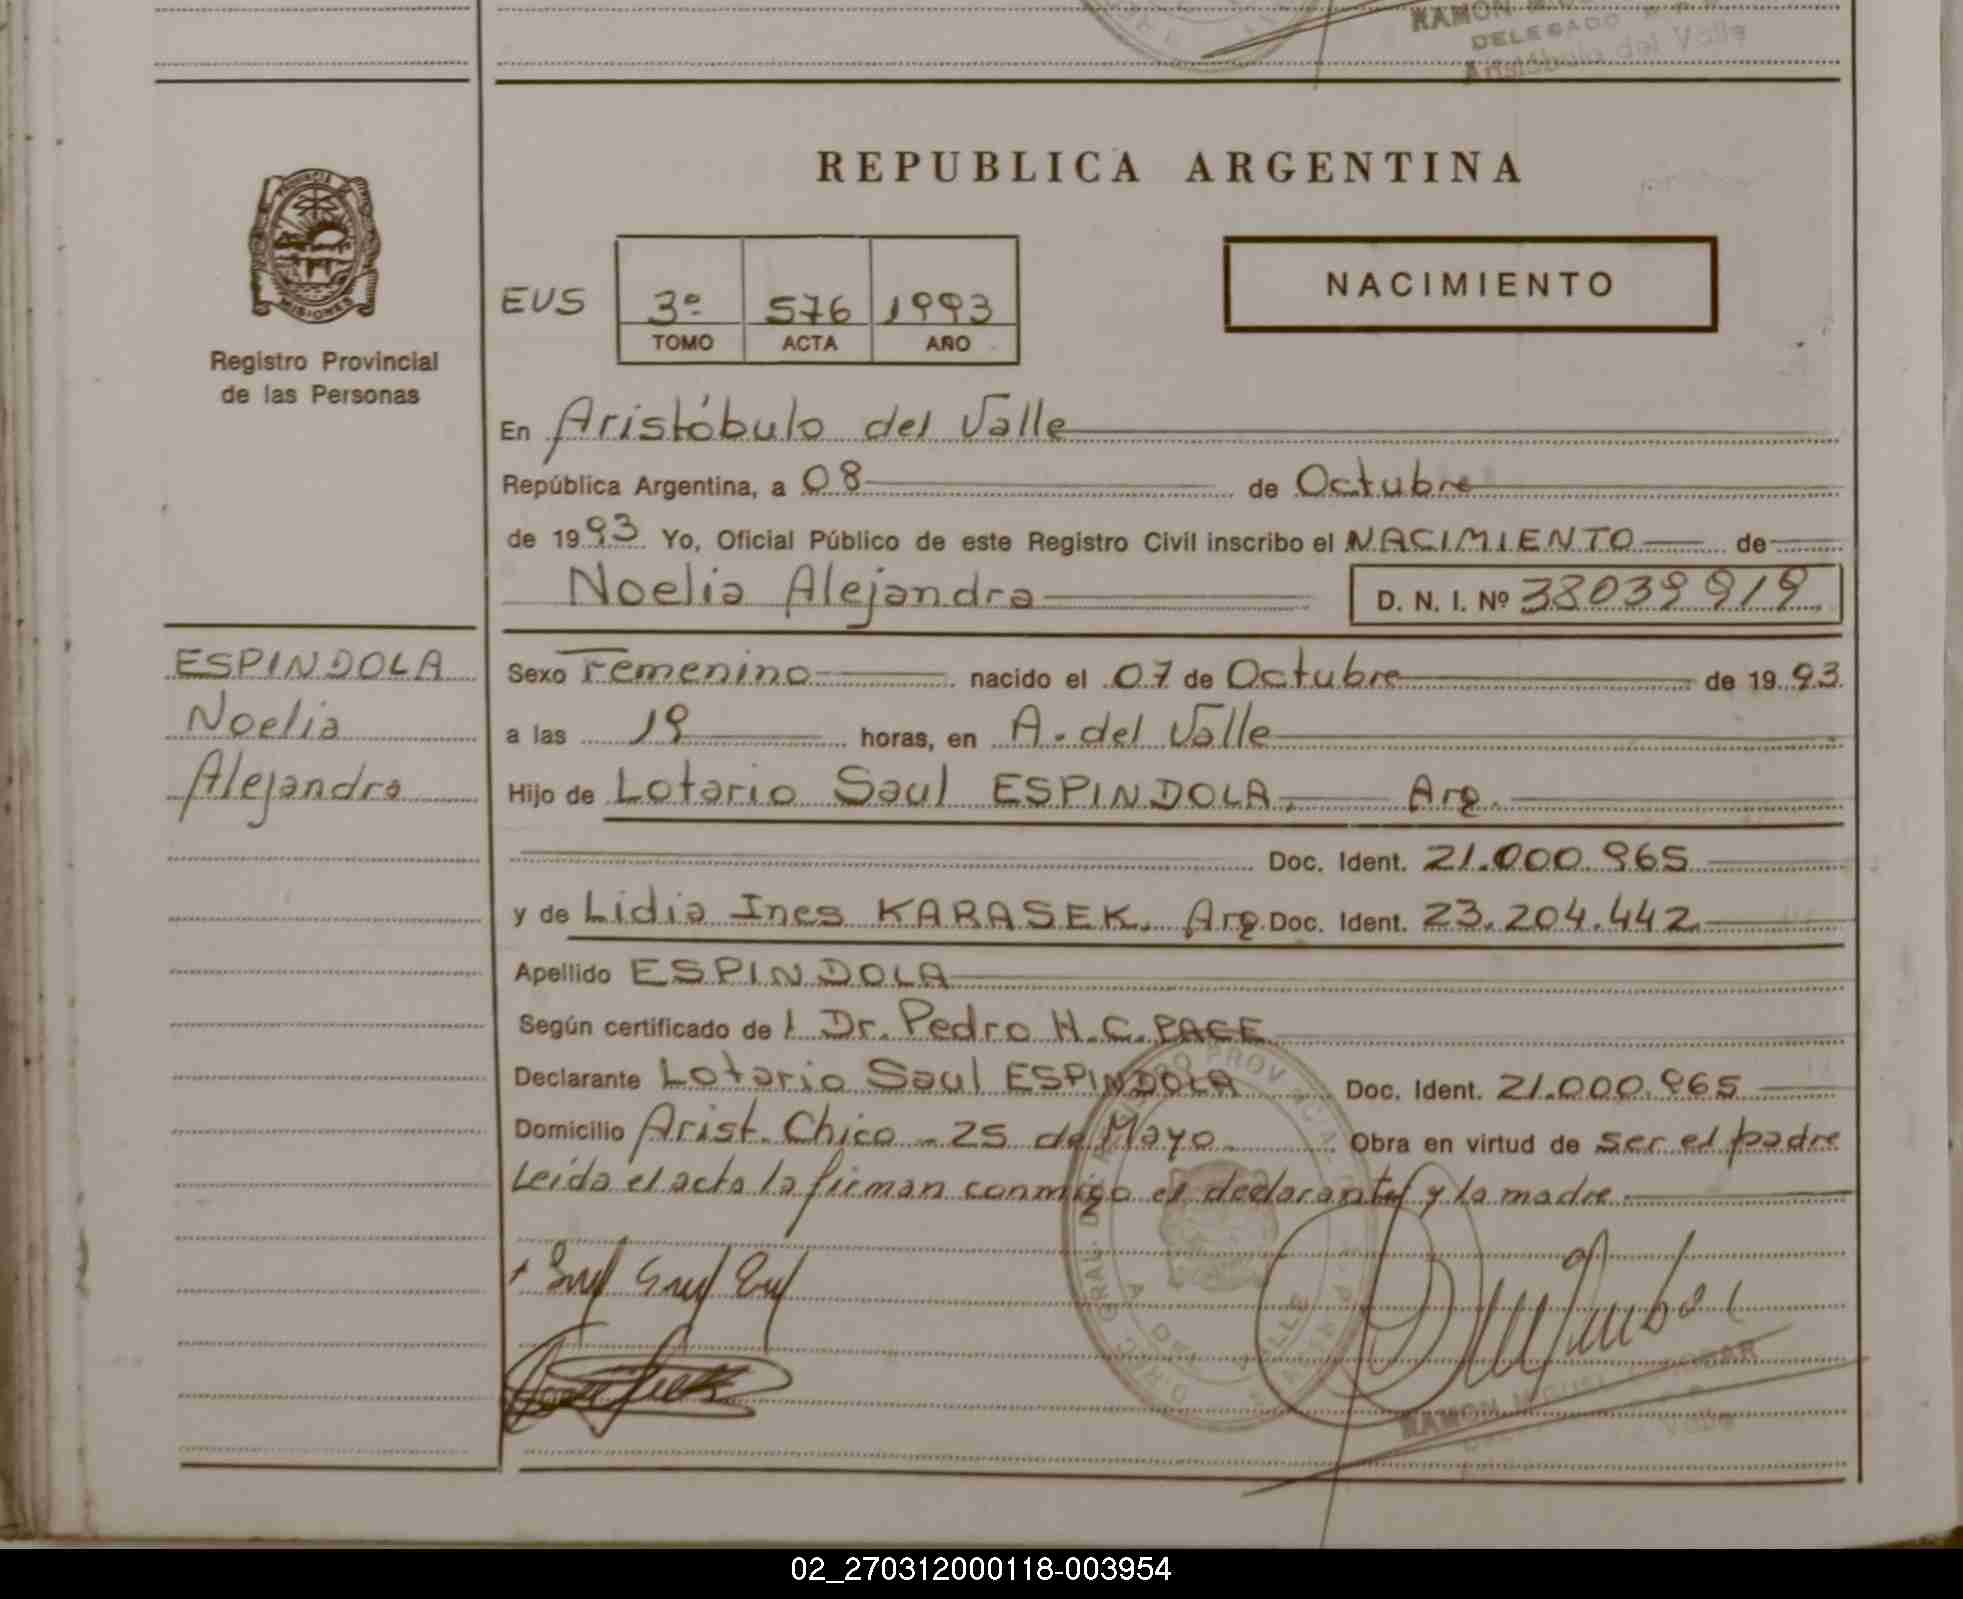 RAMON
DELEGADO
Aristóbulo del Valle
REPUBLICA ARGENTINA
PROVINCIA
MISIONES
Registro Provincial
de las Personas
EUS 3º 576 1993
TOMO ACTA AÑO
NACIMIENTO
En Aristóbulo del Valle
República Argentina, a 08 de Octubre
de 1993 Yo, Oficial Público de este Registro Civil inscribo el NACIMIENTO de
Noelia Alejandra D. N. I. Nº 38039919
ESPINDOLA
Noelia
Alejandra
Sexo Femenino nacido el 07 de Octubre de 1993
a las 19 horas, en A. del Valle
Hijo de Lotario Saul ESPINDOLA, Arg.
Doc. Ident. 21.000.965
y de Lidia Ines KARASEK, Arg. Doc. Ident. 23.204.442
Apellido ESPINDOLA
Según certificado de l Dr. Pedro H. C. PACE
Declarante Lotario Saul ESPINDOLA Doc. Ident. 21.000.965
Domicilio Arist. Chico - 25 de Mayo Obra en virtud de ser el padre
Leída el acta la firman conmigo el declarante y la madre
A. DEL VALLE
RAMON MIGUEL
02_270312000118-003954